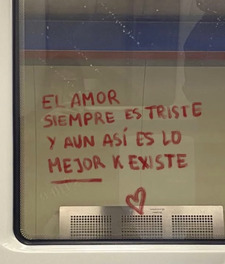 EL AMOR
SIEMPRE ES TRISTE
Y AUN ASÍ ES LO
MEJOR K EXISTE